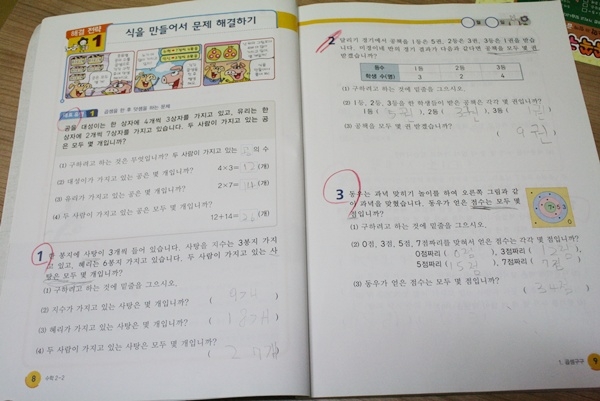 해결 전략
1
식을 만들어서 문제 해결하기
1 곱셈을 한 후 덧셈을 하는 문제
공을 대성이는 한 상자에 4개씩 3상자를 가지고 있고, 유리는 한
상자에 2개씩 7상자를 가지고 있습니다. 두 사람이 가지고 있는 공
은 모두 몇 개입니까?
(1) 구하려고 하는 것은 무엇입니까? 두 사람이 가지고 있는 공의 수
(2) 대성이가 가지고 있는 공은 몇 개입니까? 4×3= (개)
(3) 유리가 가지고 있는 공은 몇 개입니까? 2×7=14(개)
(4) 두 사람이 가지고 있는 공은 모두 몇 개입니까? 12+14= (개)
1 한 봉지에 사탕이 3개씩 들어 있습니다. 사탕을 지수는 3봉지 가지
고 있고, 혜리는 6봉지 가지고 있습니다. 두 사람이 가지고 있는 사
탕은 모두 몇 개입니까?
(1) 구하려고 하는 것에 밑줄을 그으시오.
(2) 지수가 가지고 있는 사탕은 몇 개입니까? ( 9개 )
(3) 혜리가 가지고 있는 사탕은 몇 개입니까? ( 18개 )
(4) 두 사람이 가지고 있는 사탕은 모두 몇 개입니까? ( 27개 )
8 수학 2-2
월 일
2 달리기 경기에서 공책을 1등은 5권, 2등은 3권, 3등은 1권을 받습
니다. 미경이네 반의 경기 결과가 다음과 같다면 공책을 모두 몇 권
받겠습니까?
등수 1등 2등 3등
학생 수(명) 3 2 4
(1) 구하려고 하는 것에 밑줄을 그으시오.
(2) 1등, 2등, 3등을 한 학생들이 받은 공책은 각각 몇 권입니까?
1등( 5권 ), 2등( 3권 ), 3등( )
(3) 공책을 모두 몇 권 받겠습니까?
( 9권 )
3 동우는 과녁 맞히기 놀이를 하여 오른쪽 그림과 같
이 과녁을 맞혔습니다. 동우가 얻은 점수는 모두 몇
점입니까?
7 5 3 0
(1) 구하려고 하는 것에 밑줄을 그으시오.
(2) 0점, 3점, 5점, 7점짜리를 맞혀서 얻은 점수는 각각 몇 점입니까?
0점짜리 ( 0점 ), 3점짜리 ( 12점 )
5점짜리 ( 15점 ), 7점짜리 ( 7점 )
(3) 동우가 얻은 점수는 모두 몇 점입니까?
( 34점 )
1. 곱셈구구 9